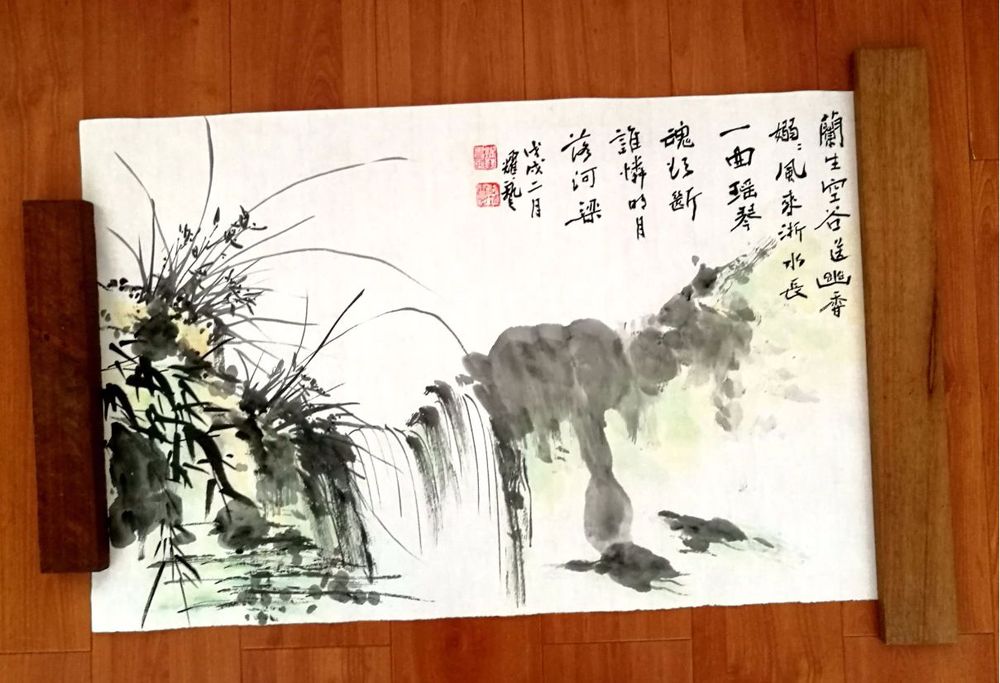 蘭生空谷送幽香
嫋:風來淅水長
一曲瑤琴
魂欲斷
誰憐明月
落河梁
戊戌二月
耀藝